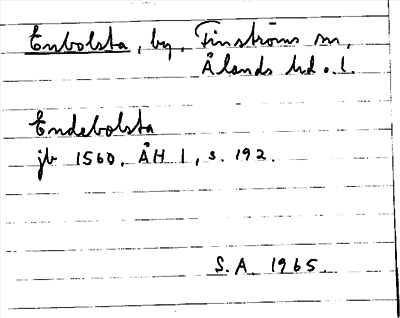 Enbolsta, by, Finströms sn,
Ålands hd o. l.
Endebolsta
jb 1560. ÅH 1, s. 192.
S. A. 1965